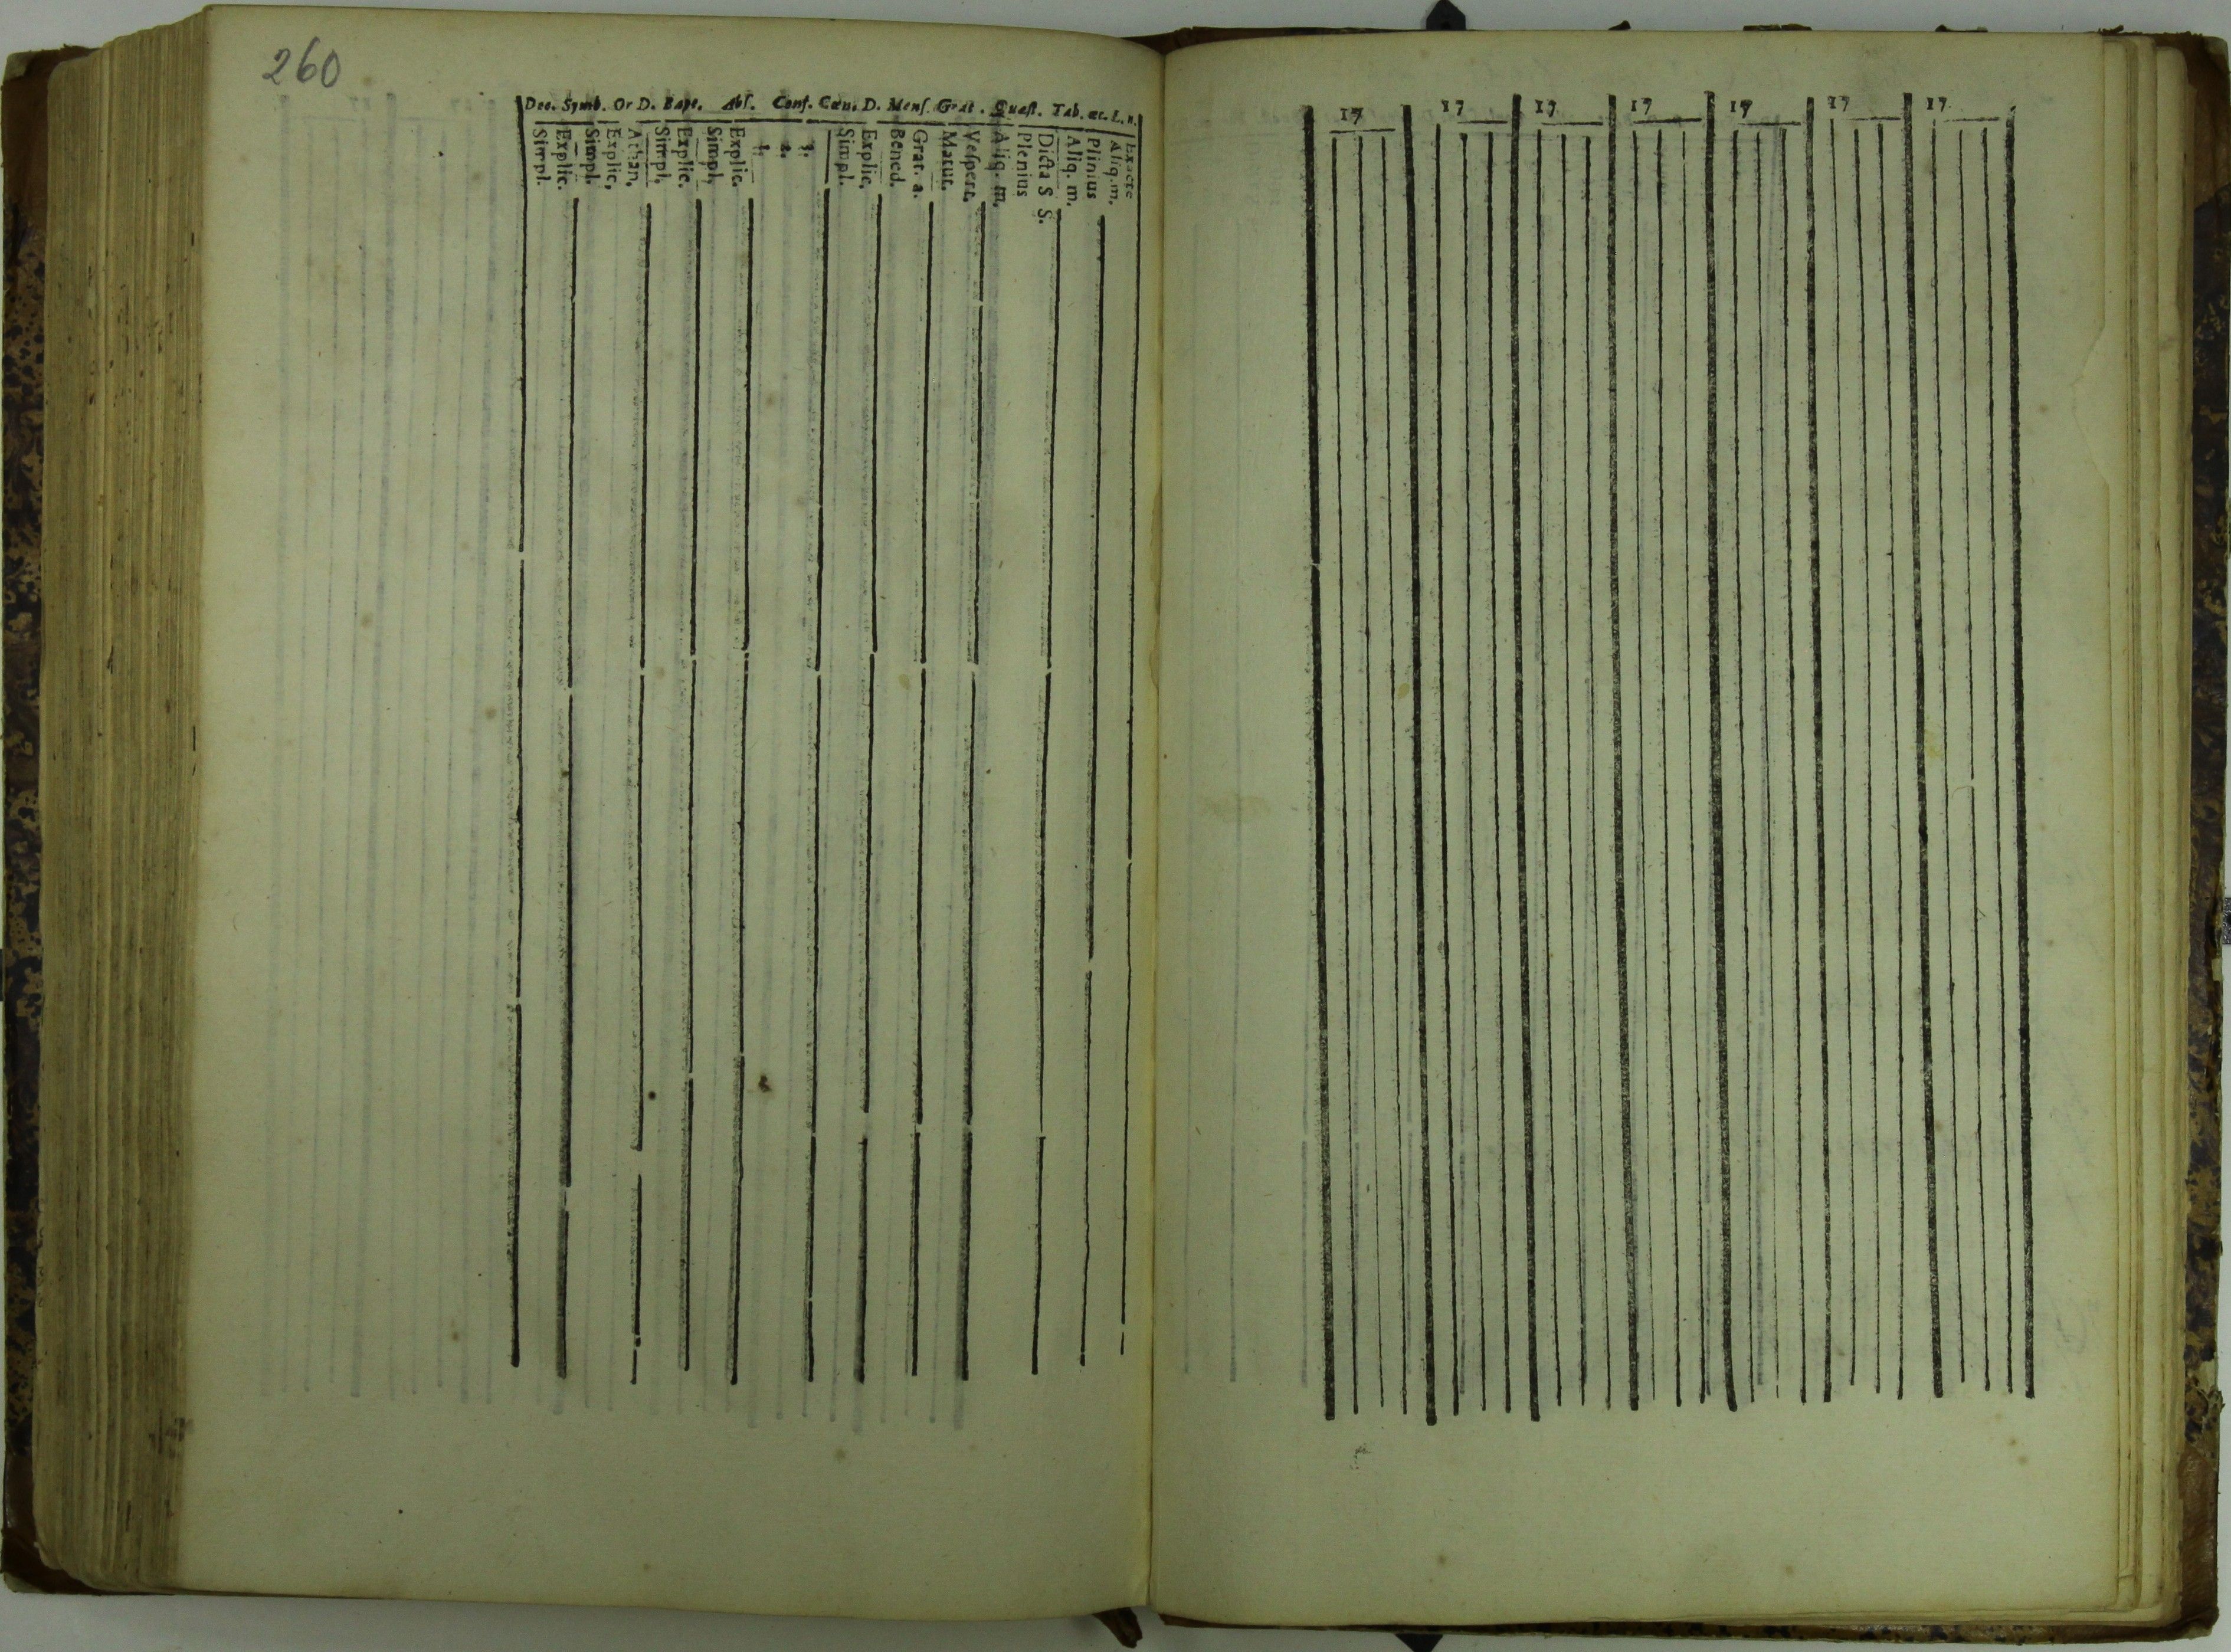 260
Dec. Symb. Or D. Bapt. Abſ. Conf. Cœn. D. Menſ. Grat. Quæſt. Tab. œc. L. n.
Simpl.
Explic.
Simpl.
Explic.
Athan.
Simpl.
Explic.
Simpl.
Explic.
1.
2.
3.
Simpl.
Explic.
Bened.
Grat. a.
Matut.
Veſpert.
Aliq. m.
Plenius
Dicta S S.
Aliq. m.
Plinius
Aliq. m.
Exacte
17 17 17 17 17 17 17